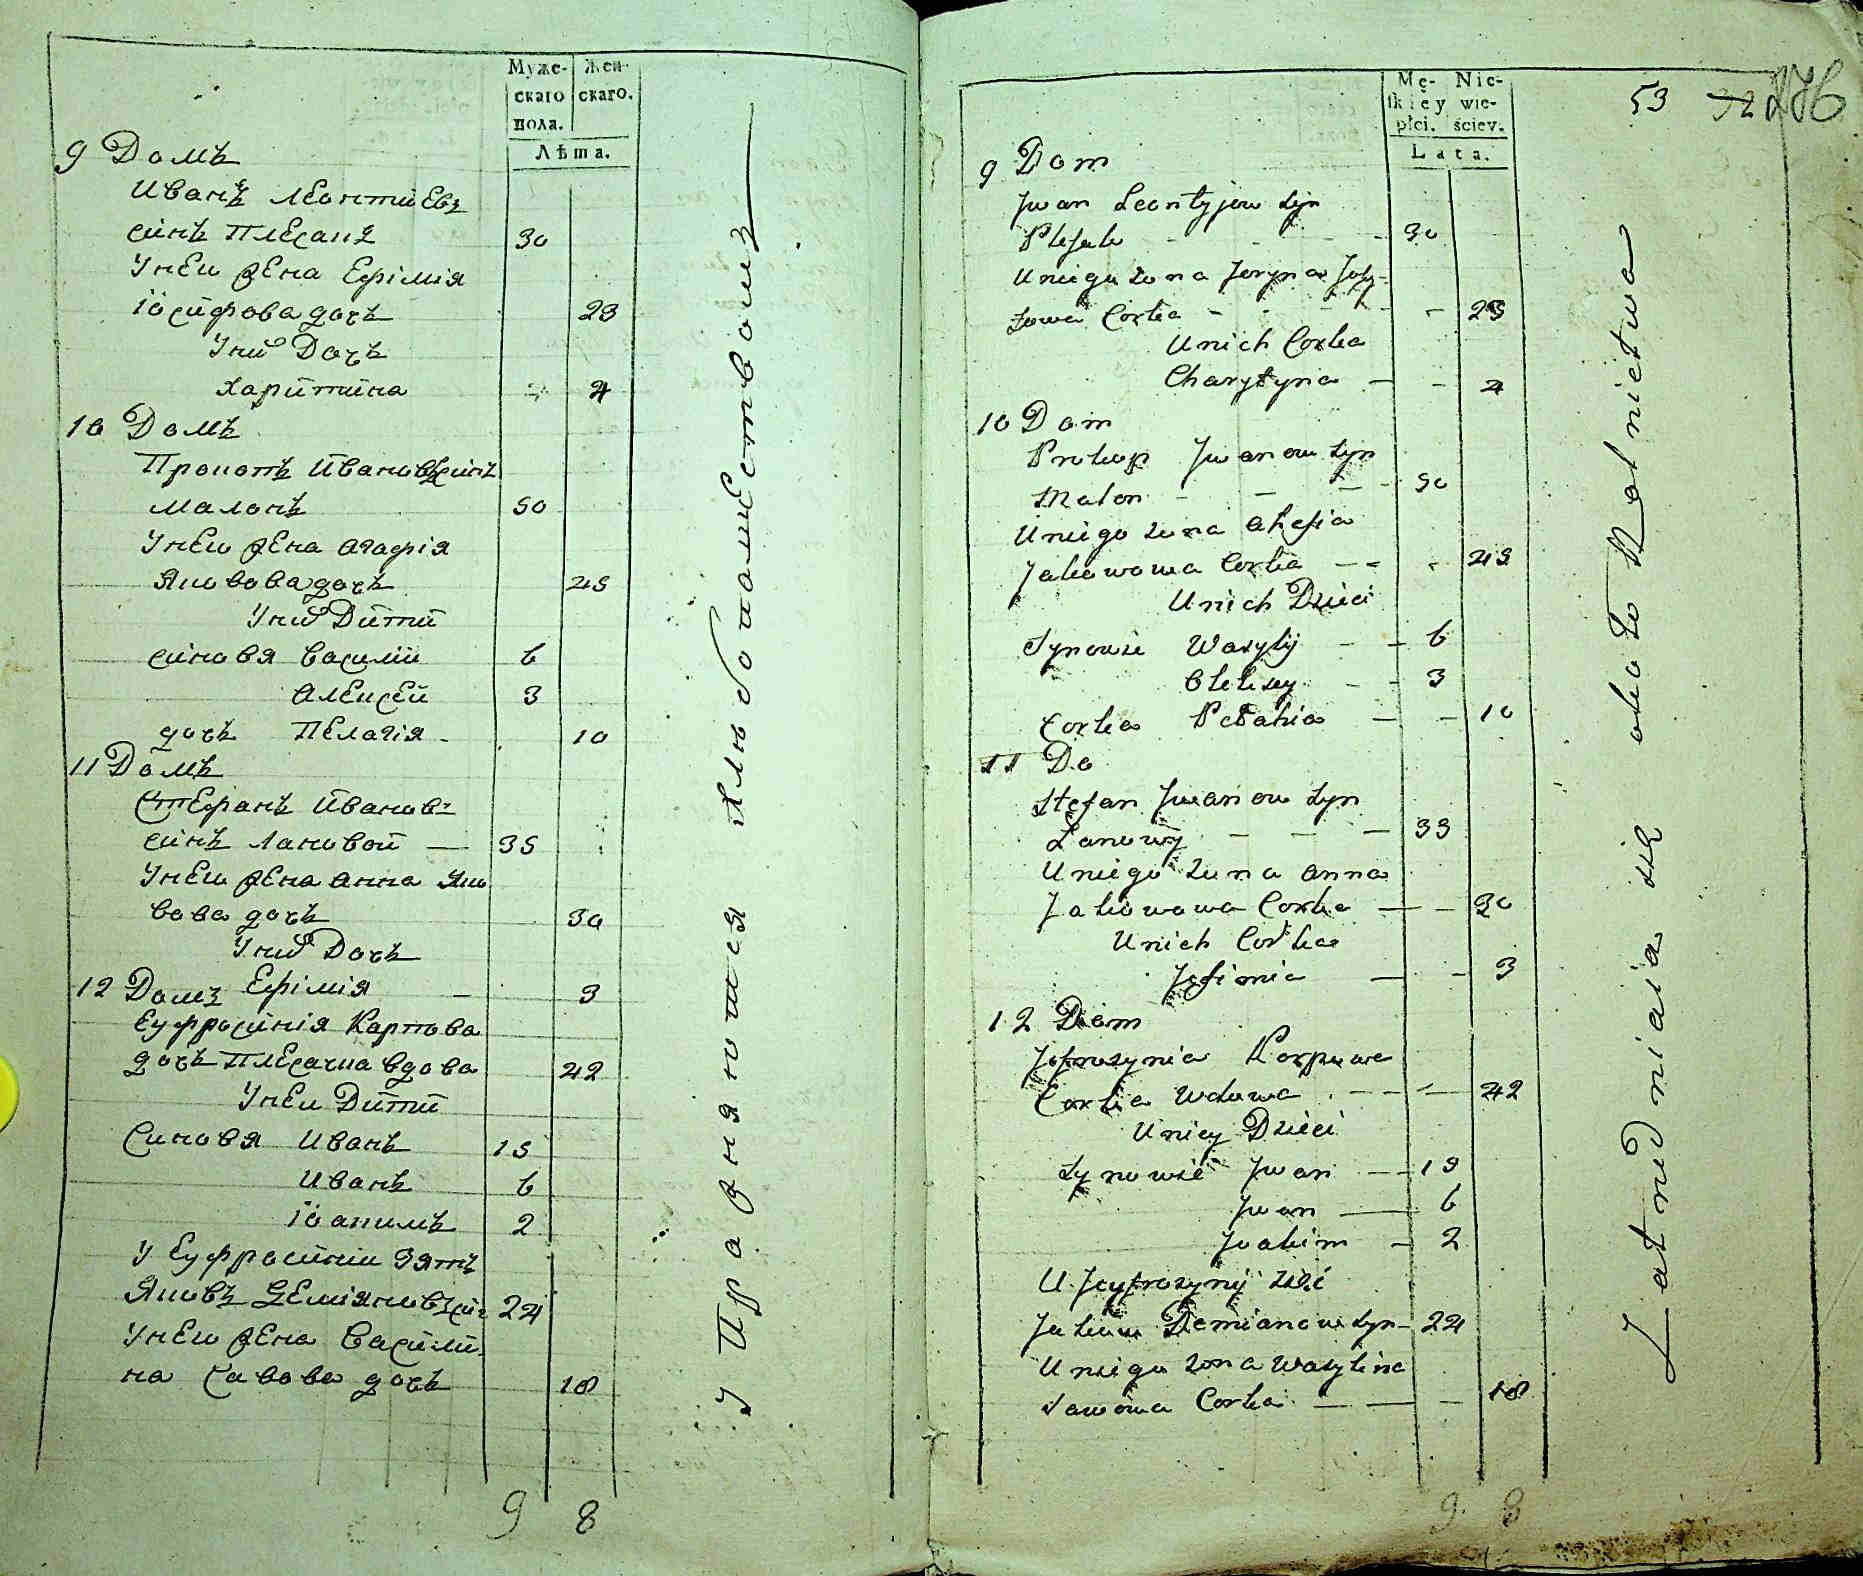 Муже-
скаго
пола.
Жен-
скаго.
Лѣта.
9 Домъ
Иванъ Леонтиевъ
синъ Плесака
30
Унеи жена Ефімія
Іосифова дочь
23
У них Дочь
Харитина
4
10 Домъ
Прокопъ Ивановъ синъ
Малонъ
50
Унего жена Агафія
Яковова дочь
45
У них Дити
синовя Василій
6
Алексей
3
дочь Пелагія
10
11 Домъ
Стефанъ Иванов
синъ Лановой
35
Унего жена Анна Яко
вова дочь
30
У них Дочь
Ефімія
3
12 Домъ
Еуфросинія Карпова
дочь Плесачка вдова
42
Унеи Дити
Синовя Иванъ
15
Иванъ
6
Іоакимъ
2
У Еуфросинии Зять
Яковъ Деміяновъ син
24
Унего жена Васили
на Савова дочь
18
9 8
упражняются хлебопашествомъ
53 276
Mę-
skiey
płci.
Nie-
wie-
ściey.
Lata.
9 Dom
Jwan Leontyjow syn
Plesak
30
U niego żona Jozy-
fowa Corka
23
U nich Corka
Charytyna
4
10 Dom
Prokop Jwanow syn
Malon
50
U niego żona Ahafia
Jakowowa Corka
45
U nich Dzieci
Synowie Wasylij
6
Oleksey
3
Corka Pelahia
10
11 Do
Stefan Jwanow syn
Lanowy
33
U niego żona Anna
Jakowowa Corka
30
U nich Corka
Jefimia
3
12 Dom
Jefrozynia Karpowa
Corka Wdowa
42
U niey Dzieci
Synowie Jwan
15
Jwan
6
Joakim
2
U Jeyfrozynij Zięć
Jakow Demianow syn
24
U niego żona Wasylina
Sawowa Corka
18
9 8
Zatrudniaia się około Rolnictwa